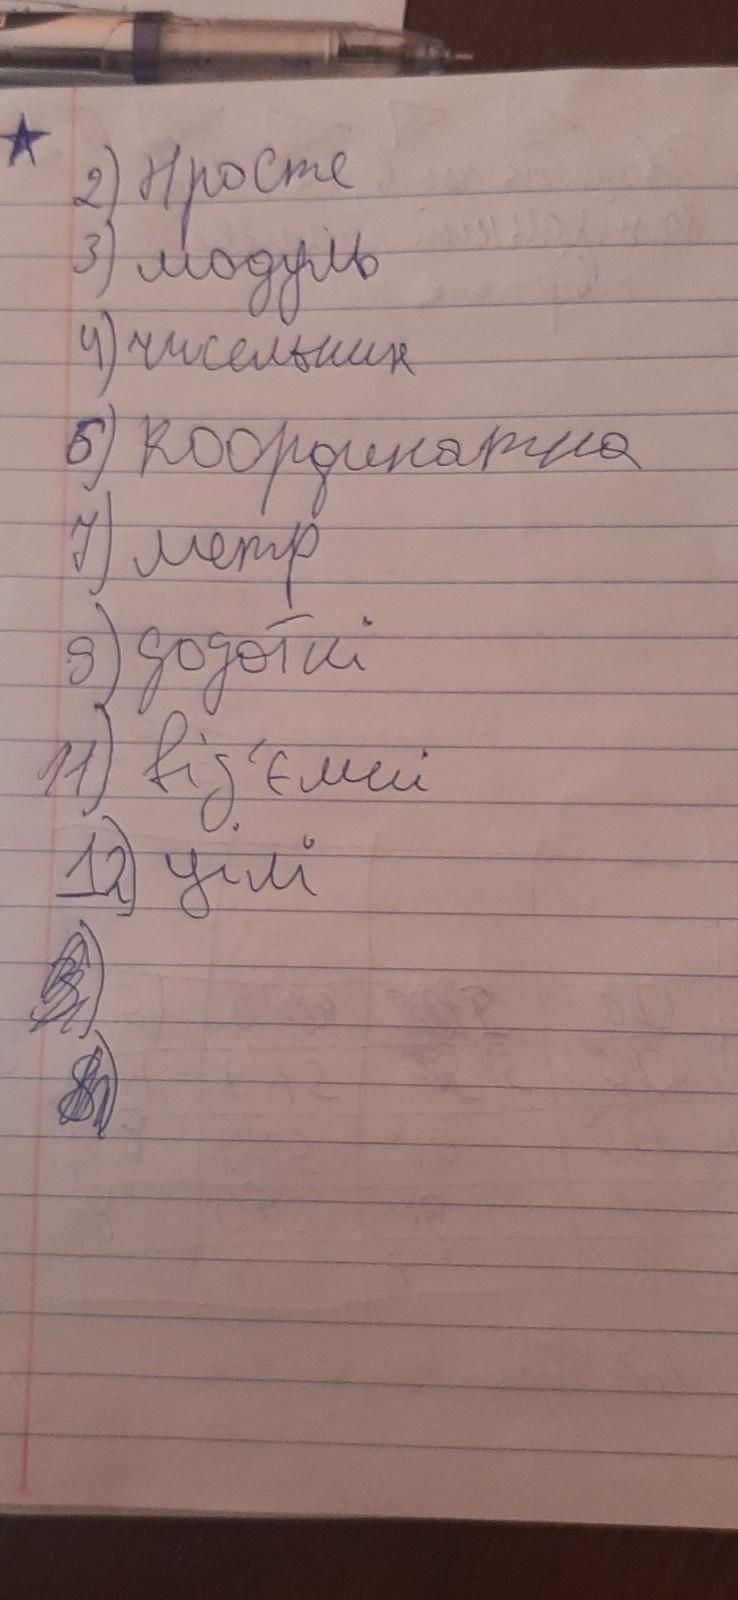 2) Просте
3) модуль
4) чисельник
6) координатна
7) метр
9) додаткі
11) від'ємні
12) цілі